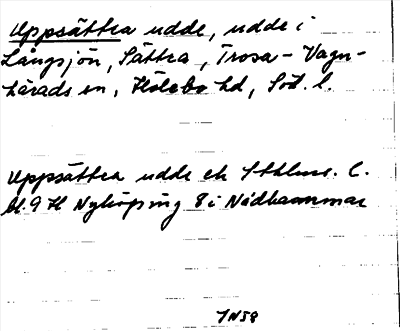 Uppsättra udde, udde i
Långsjön, Sättra, Trosa-Vagn-
härads sn, Hölebo hd, Söd. l.
Uppsättra udde ek Sthlms. l.
bl. 9 H Nyköping 8 i Nödhammar
JN58